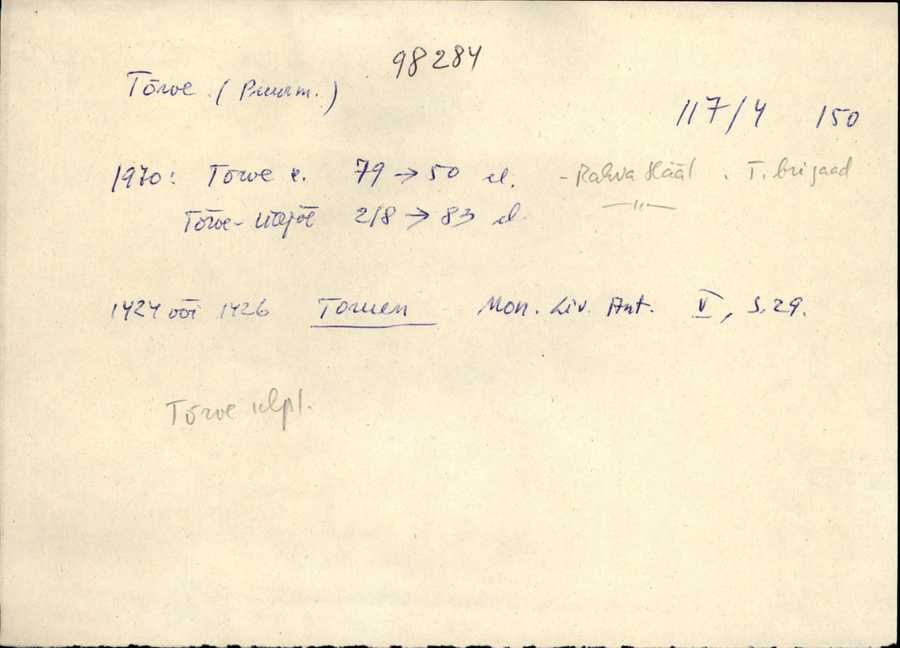 98284
Tõrve (Puurm.)
117/4 150
1970: Tõrve k. 79 → 50 el. - Rahva Hääl. T. brigaad
Tõrve- 218 → 83 el. -"-
1424 või 1426 Toruen Mon. Liv. Ant. V, S. 29.
Tõrve